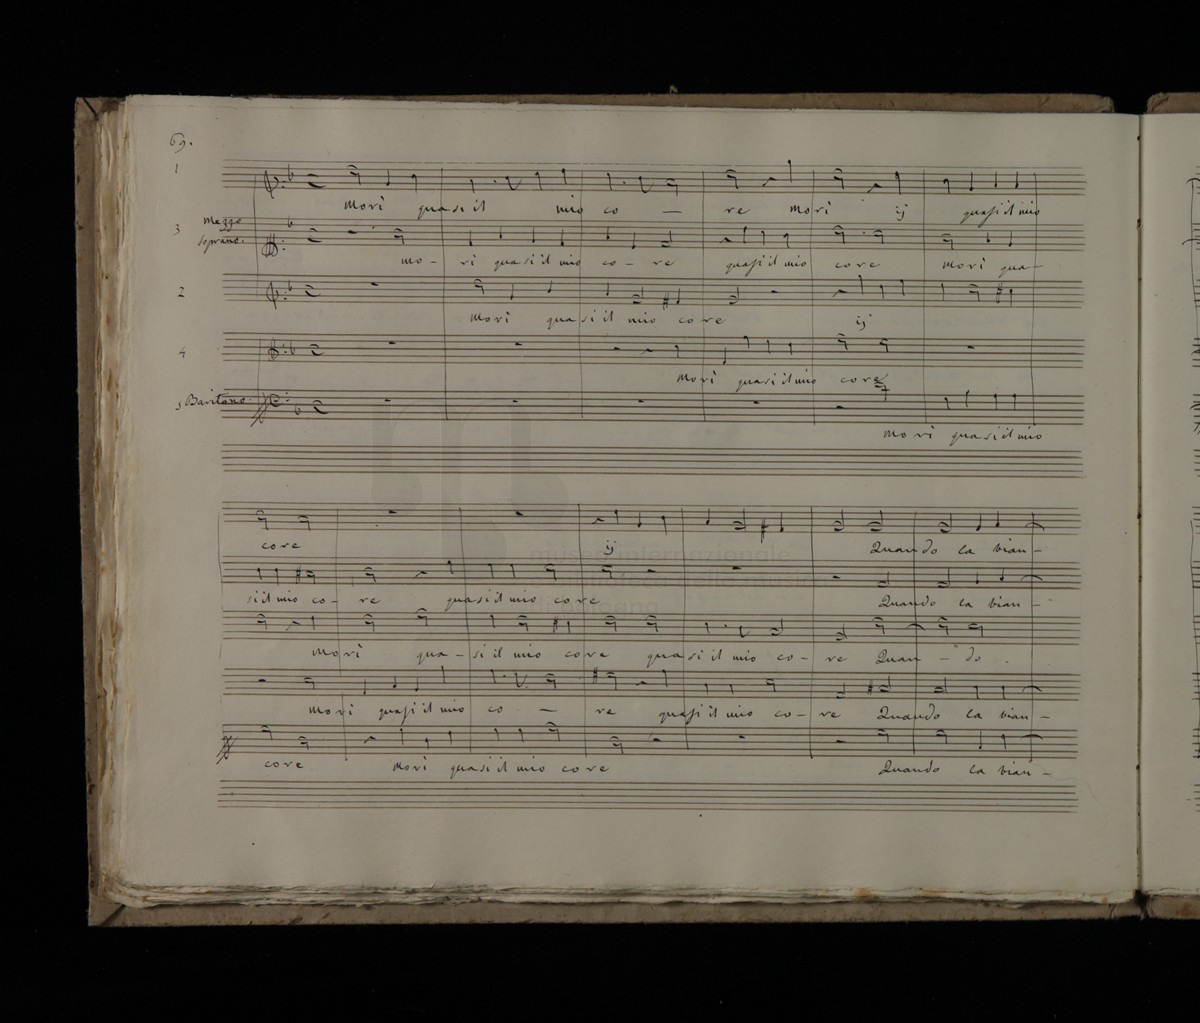 69.
1
Morì quasi il mio co — re morì ij quasi il mio
3 Mezzo
Soprano.
mo - rì quasi il mio co - re quasi il mio core Morì qua -
2
Morì quasi il mio core ij
4
Morì quasi il mio core
5 Baritono.
Morì quasi il mio
core ij Quando la bian -
si il mio co - re quasi il mio core Quando la bian -
Morì qua - si il mio core quasi il mio co - re Quan - do .
Morì quasi il mio co — re quasi il mio co - re Quando la bian -
core Morì quasi il mio core Quando la bian -
museo internazionale